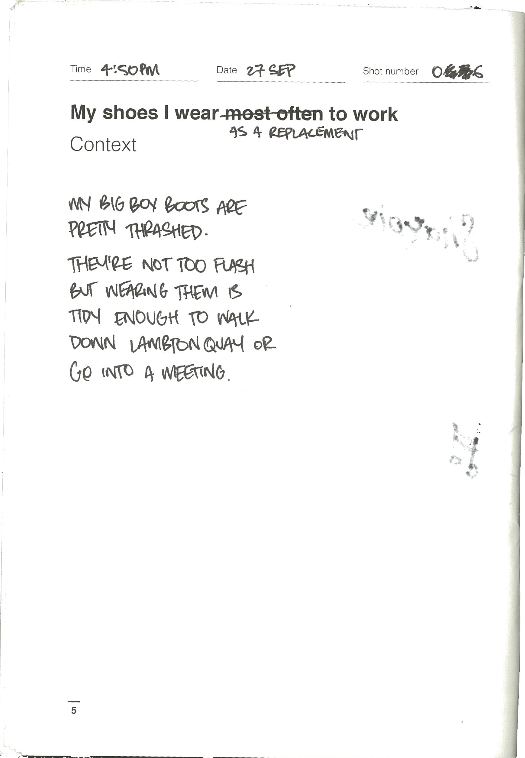 Time 4:50PM Date 27 SEP Shot number 6
My shoes I wear most often to work
AS A REPLACEMENT
Context
MY BIG BOY BOOTS ARE
PRETTY THRASHED.
THEY'RE NOT TOO FLASH
BUT WEARING THEM IS
TIDY ENOUGH TO WALK
DOWN LAMBTON QUAY OR
GO INTO A MEETING.
5